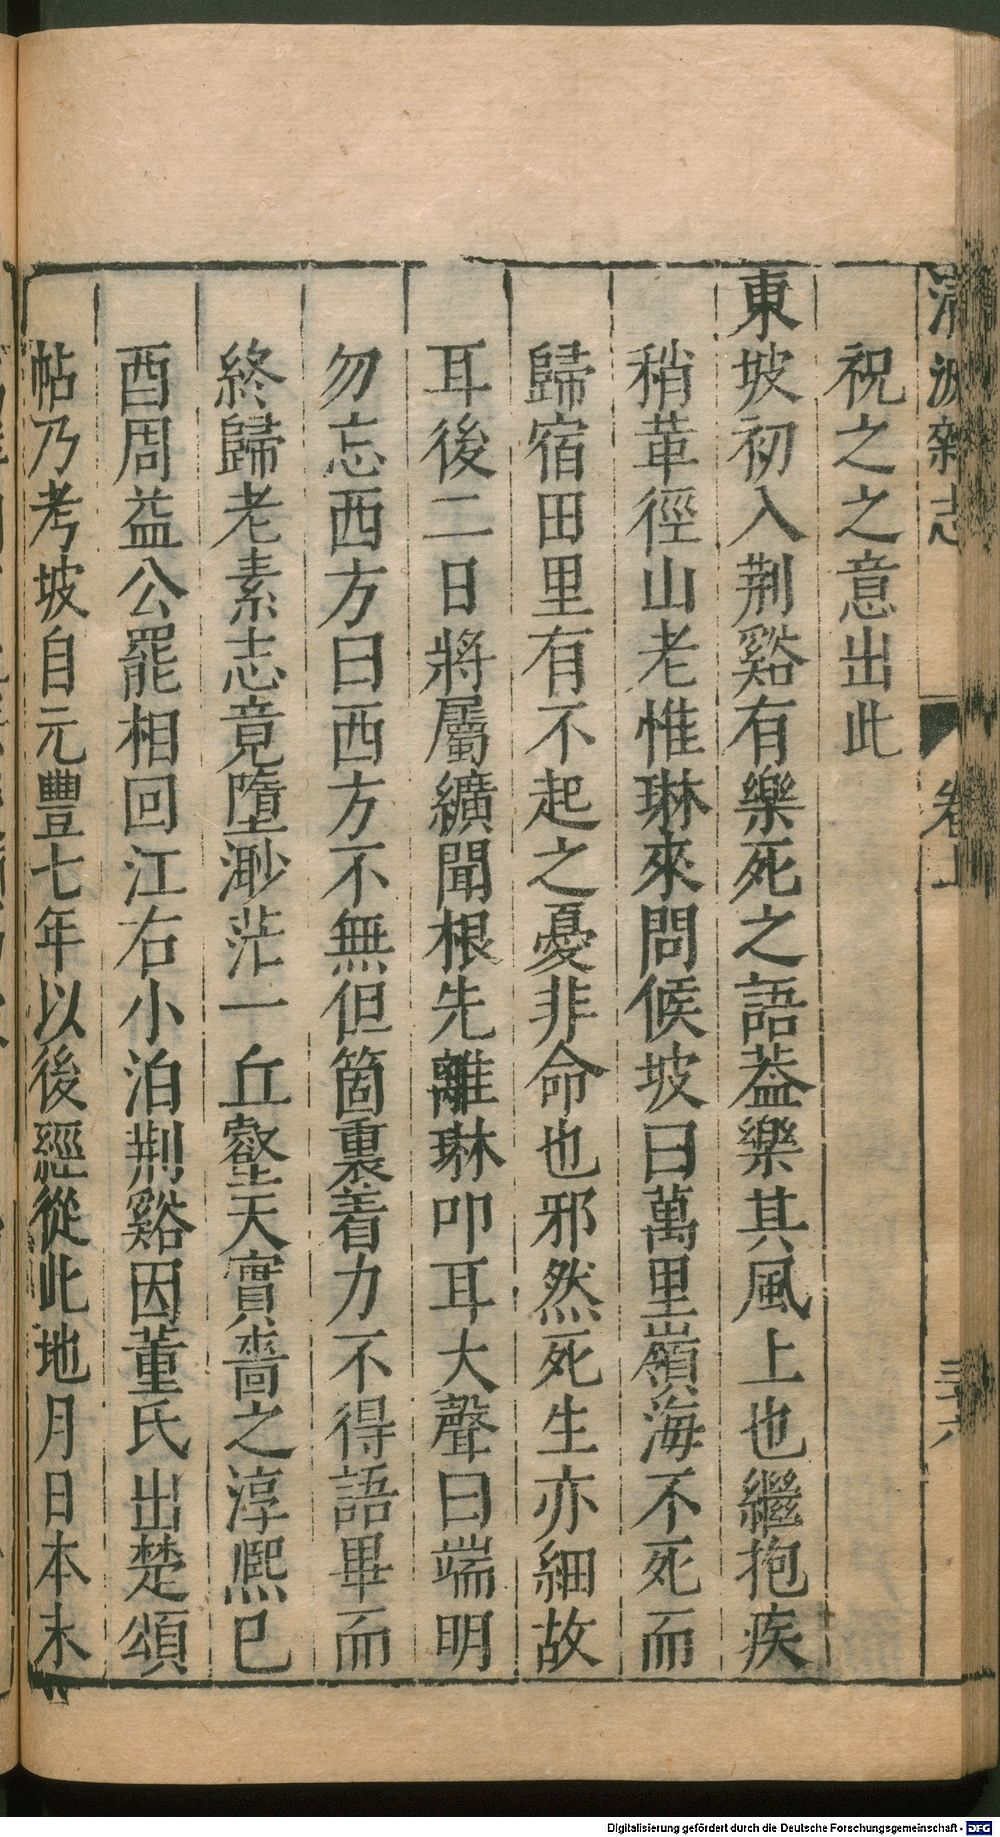 清波雜志 卷上 三六
祝之之意出此
東坡初入荆谿有樂死之語葢樂其風上也繼抱疾
稍革徑山老惟琳來問候坡曰萬里嶺海不死而
歸宿田里有不起之憂非命也邪然死生亦細故
耳後二日將屬纊聞根先離琳叩耳大聲曰端明
勿忘西方曰西方不無但箇裏着力不得語畢而
終歸老素志竟墮渺茫一丘壑天實嗇之淳熙已
酉周益公罷相回江右小泊荆谿因董氏出楚頌
帖乃考坡自元豐七年以後經從此地月日本末
Digitalisierung gefördert durch die Deutsche Forschungsgemeinschaft - DFG